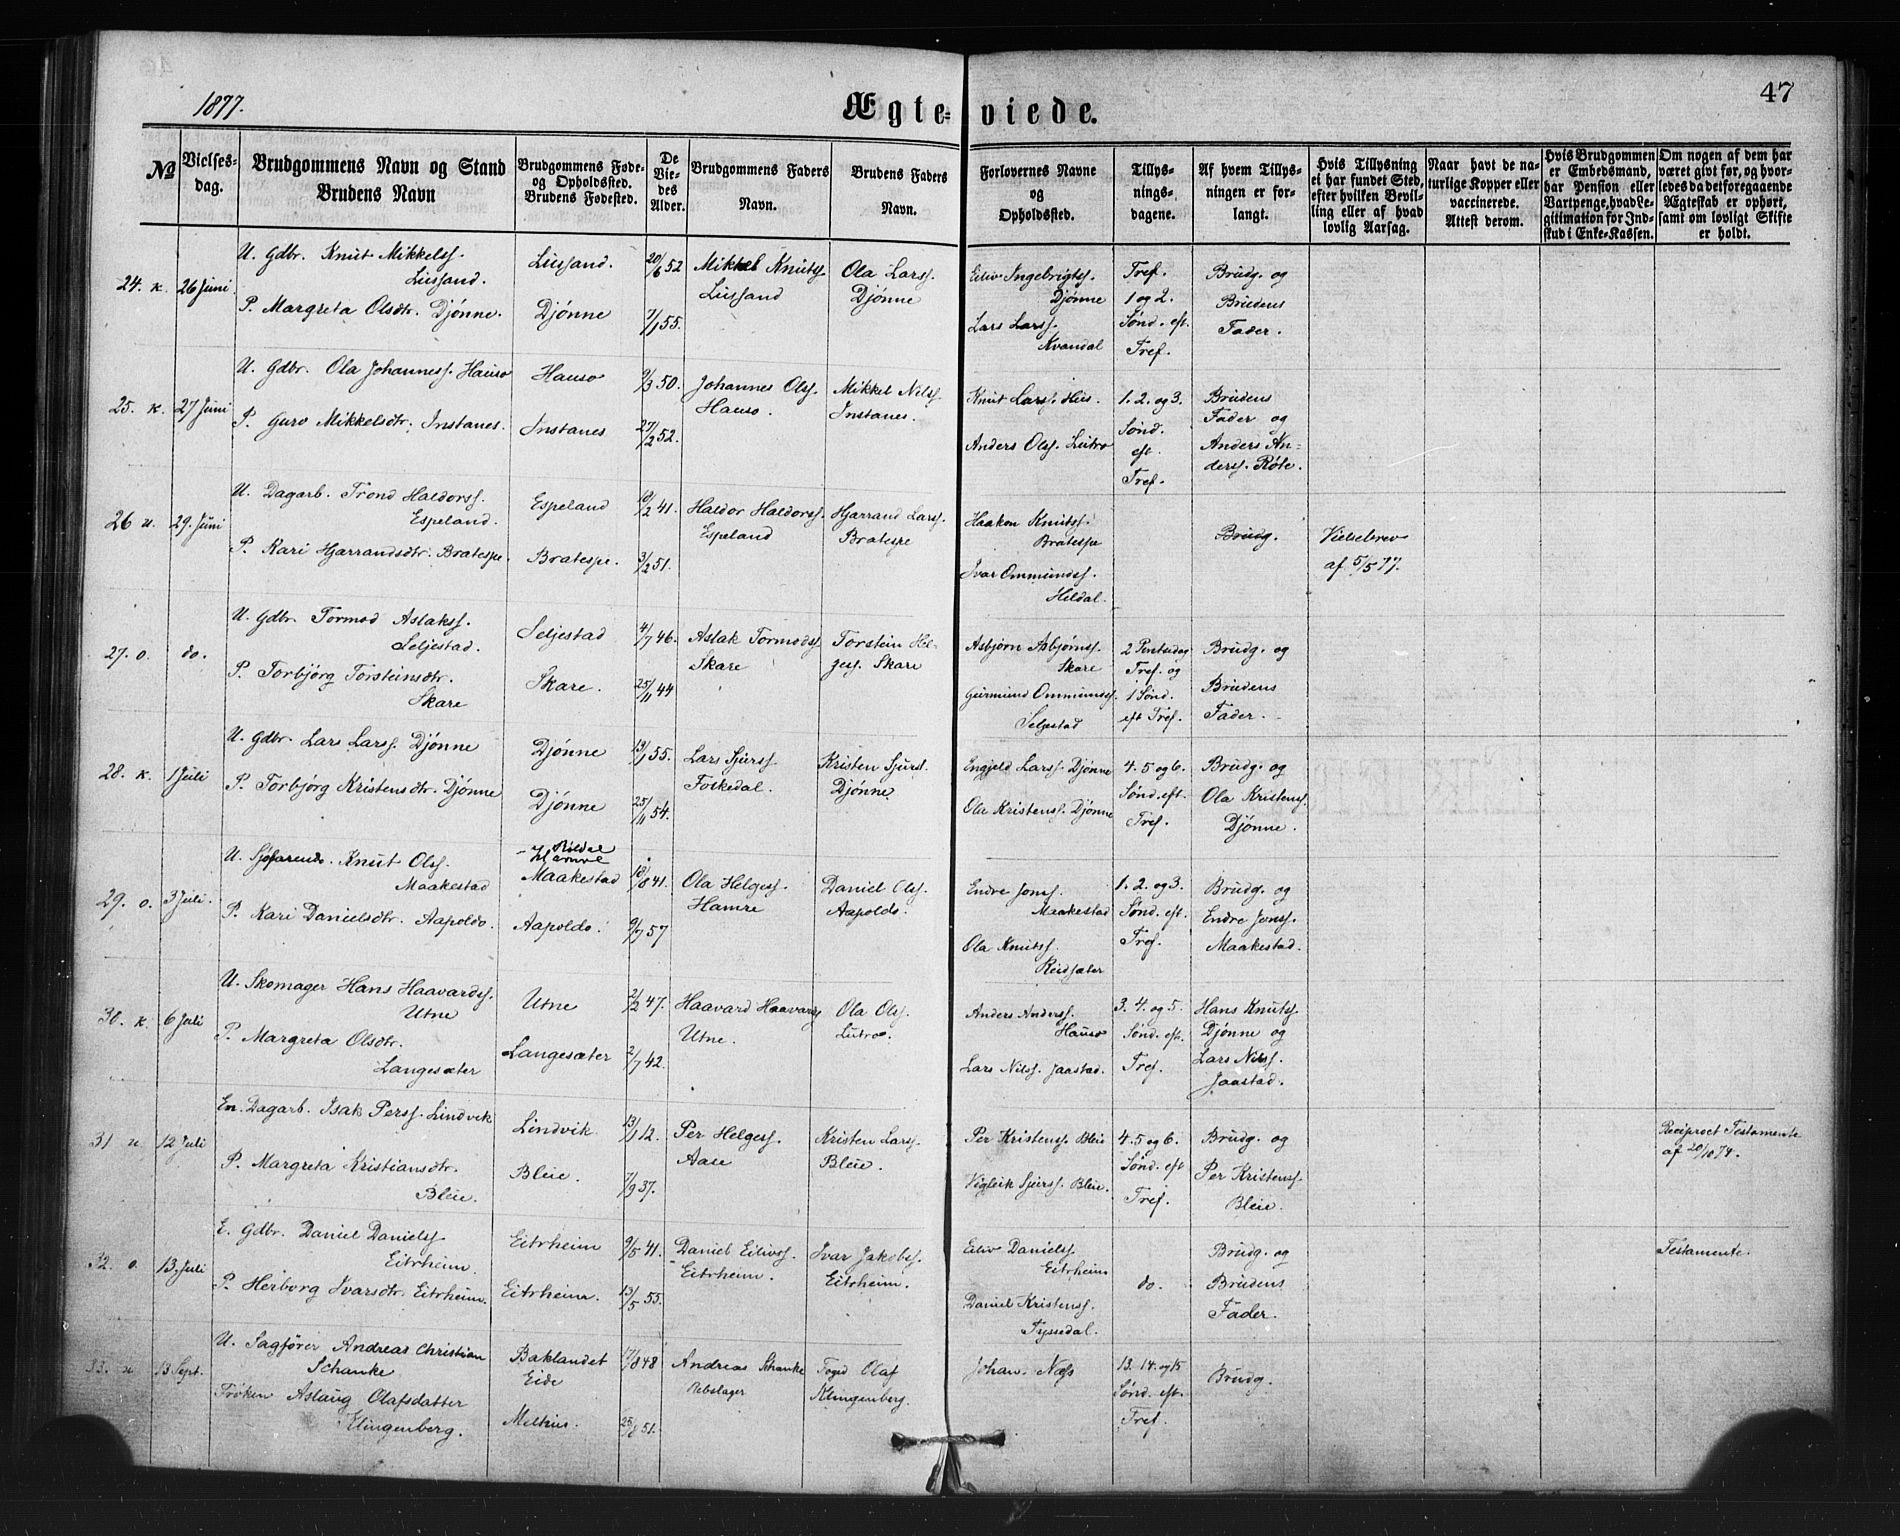 1877.
Ægte-viede.
47
№
Vielses-dag.
Brudgommens Navn og Stand
Brudens Navn
Brudgommens Føde- og Opholdssted.
Brudens Fødested.
De Viedes Alder.
Brudgommens Faders Navn.
Brudens Faders Navn.
Forlovernes Navne og Opholdssted.
Tillysningsdagene.
Af hvem Tillysningen er forlangt.
Hvis Tillysning ei har fundet Sted, efter hvilken Bevilling eller af hvad lovlig Aarsag.
Naar havt de naturlige Kopper eller vaccinerede. Attest derom.
Hvis Brudgommen er Embedsmand, har Pension eller Vartpenge, hvad Legitimation for Indskud i Enke-Kassen.
Om nogen af dem har været givt før, og hvorledes da det foregaaende Ægteskab er ophørt, samt om lovligt Skifte er holdt.
24. K. 26 Juni.
U. Gdbr. Knut Mikkelss.
Lussand.
P. Margreta Olsdtr. Djønne.
Lussand.
Djønne
20/6 52
7/1 55.
Mikkel Knutss.
Lussand
Ola Larss.
Djønne
Eiliv Ingebrigtss.
Djønne
Lars Larss.
Kvandal
Tref.
1 og 2.
Sønd. eft.
Tref.
Brudg. og
Brudens
Fader.
25. K. 27 Juni
U. Gdbr. Ola Johanness. Hauso
P. Guro Mikkelsdtr. Instanes.
Hauso
Instanes
9/3 50.
27/2 52.
Johannes Olss.
Hauso.
Mikkel Nilss.
Instanes.
Knut Larss. Hus.
Anders Olss. Lutro
1. 2. og 3.
Sønd.
eft.
Tref.
Brudens
Fader og
Anders An-
derss. Røte.
26 u. 29. Juni
U. Dagarb. Trond Haldorss.
Espeland.
P. Kari Hjarrandsdtr. Bratespe.
Espeland
Bratespe.
18/2 41.
3/2 51.
Haldor Haldorss.
Espeland
Hjarrand Larss.
Bratespe
Haakon Knutss.
Bratespe
Ivar Ommundss.
Heldal.
Brudg.
Vielsebrev
af 5/5 77.
27. o. do.
U. Gdbr. Tormod Aslakss.
Seljestad.
P. Torbjørg Torsteinsdtr.
Skare
Seljestad
Skare.
4/7 46.
25/11 44
Aslak Tormodss.
Skare
Torstein Hel-
gess. Skare
Asbjørn Asbjørnss.
Skare
Geirmund Ommundss.
Seljestad
2 Pintsedag
Tref. og
1 Sønd.
eft Tref.
Brudg. og
Brudens
Fader.
28. K. 1 Juli
U. Gdbr. Lars Larss. Djønne
P. Torbjørg Kristensdtr. Djønne
Djønne
Djønne
13/1 55.
25/11 54.
Lars Sjurss.
Foskedal.
Kristen Sjurss.
Djønne.
Engjeld Larss. Djønne
Ola Kristenss. Djønne
4. 5 og 6.
Sønd. eft.
Tref.
Brudg. og
Ola Kristenss.
Djønne.
29. o. 3 Juli.
U. Sjøfarende. Knut Olss.
Maakestad
P. Kari Danielsdtr. Aapoldo.
Røldal
Maakestad
Aapoldo.
18/8 41.
9/7 57
Ola Helgess.
Hamre
Daniel Olss.
Aapoldo.
Endre Jonss.
Maakestad
Ola Knutss.
Reidsæter
1. 2. og 3.
Sønd. eft.
Tref.
Brudg. og
Endre Jonss.
Maakestad.
30. K. 6 Juli
U. Skomager Hans Haavardss.
Utne
P. Margreta Olsdtr.
Langesæter
Utne
Langesæter
2/2 47.
2/7 42.
Haavard Haavardss.
Utne.
Ola Olss.
Lutro.
Anders Anderss.
Hauso
Lars Nilss. Jaastad.
3. 4. og 5.
Sønd. eft.
Tref.
Hans Knutss.
Djønne og
Lars Nilss.
Jaastad.
31 u. 12 Juli
En. Dagarb. Isak Perss. Lindvik
P. Margreta Kristiansdtr.
Bleie.
Lindvik.
Bleie.
13/1 12.
7/9 37.
Per Helgess.
Aase
Kristen Larss.
Bleie.
Per Kristenss. Bleie
Vigleik Sjurss. Bleie.
4. 5 og 6.
Sønd. eft
Tref.
Brudg. og
Per Kristenss.
Bleie.
Reciproct Testamente
af 20/10 74.
32. o. 13. Juli
E. Gdbr. Daniel Danielss.
Eitrheim.
P. Herborg Ivarsdtr. Eitrheim.
Eitrheim
Eitrheim.
9/5 41.
13/5 55.
Daniel Eilivss.
Eitrheim.
Ivar Jakobss.
Eitrheim.
Eiliv Danielss.
Eitrheim
Daniel Kristenss.
Tyssedal.
do.
Brudg. og
Brudens
Fader.
Testamente.
33. u 13 Sept.
U. Sagfører Andreas Christian
Schanke
Frøken Aslaug Olafsdatter
Klingenberg.
Baklandet
Eide
Melhus.
17/8 48
Andreas Schanke
Rebslager
Foged Olaf
Klingenberg.
Johan. Næss
13. 14. og 15
Sønd. eft.
Tref.
Brudg.